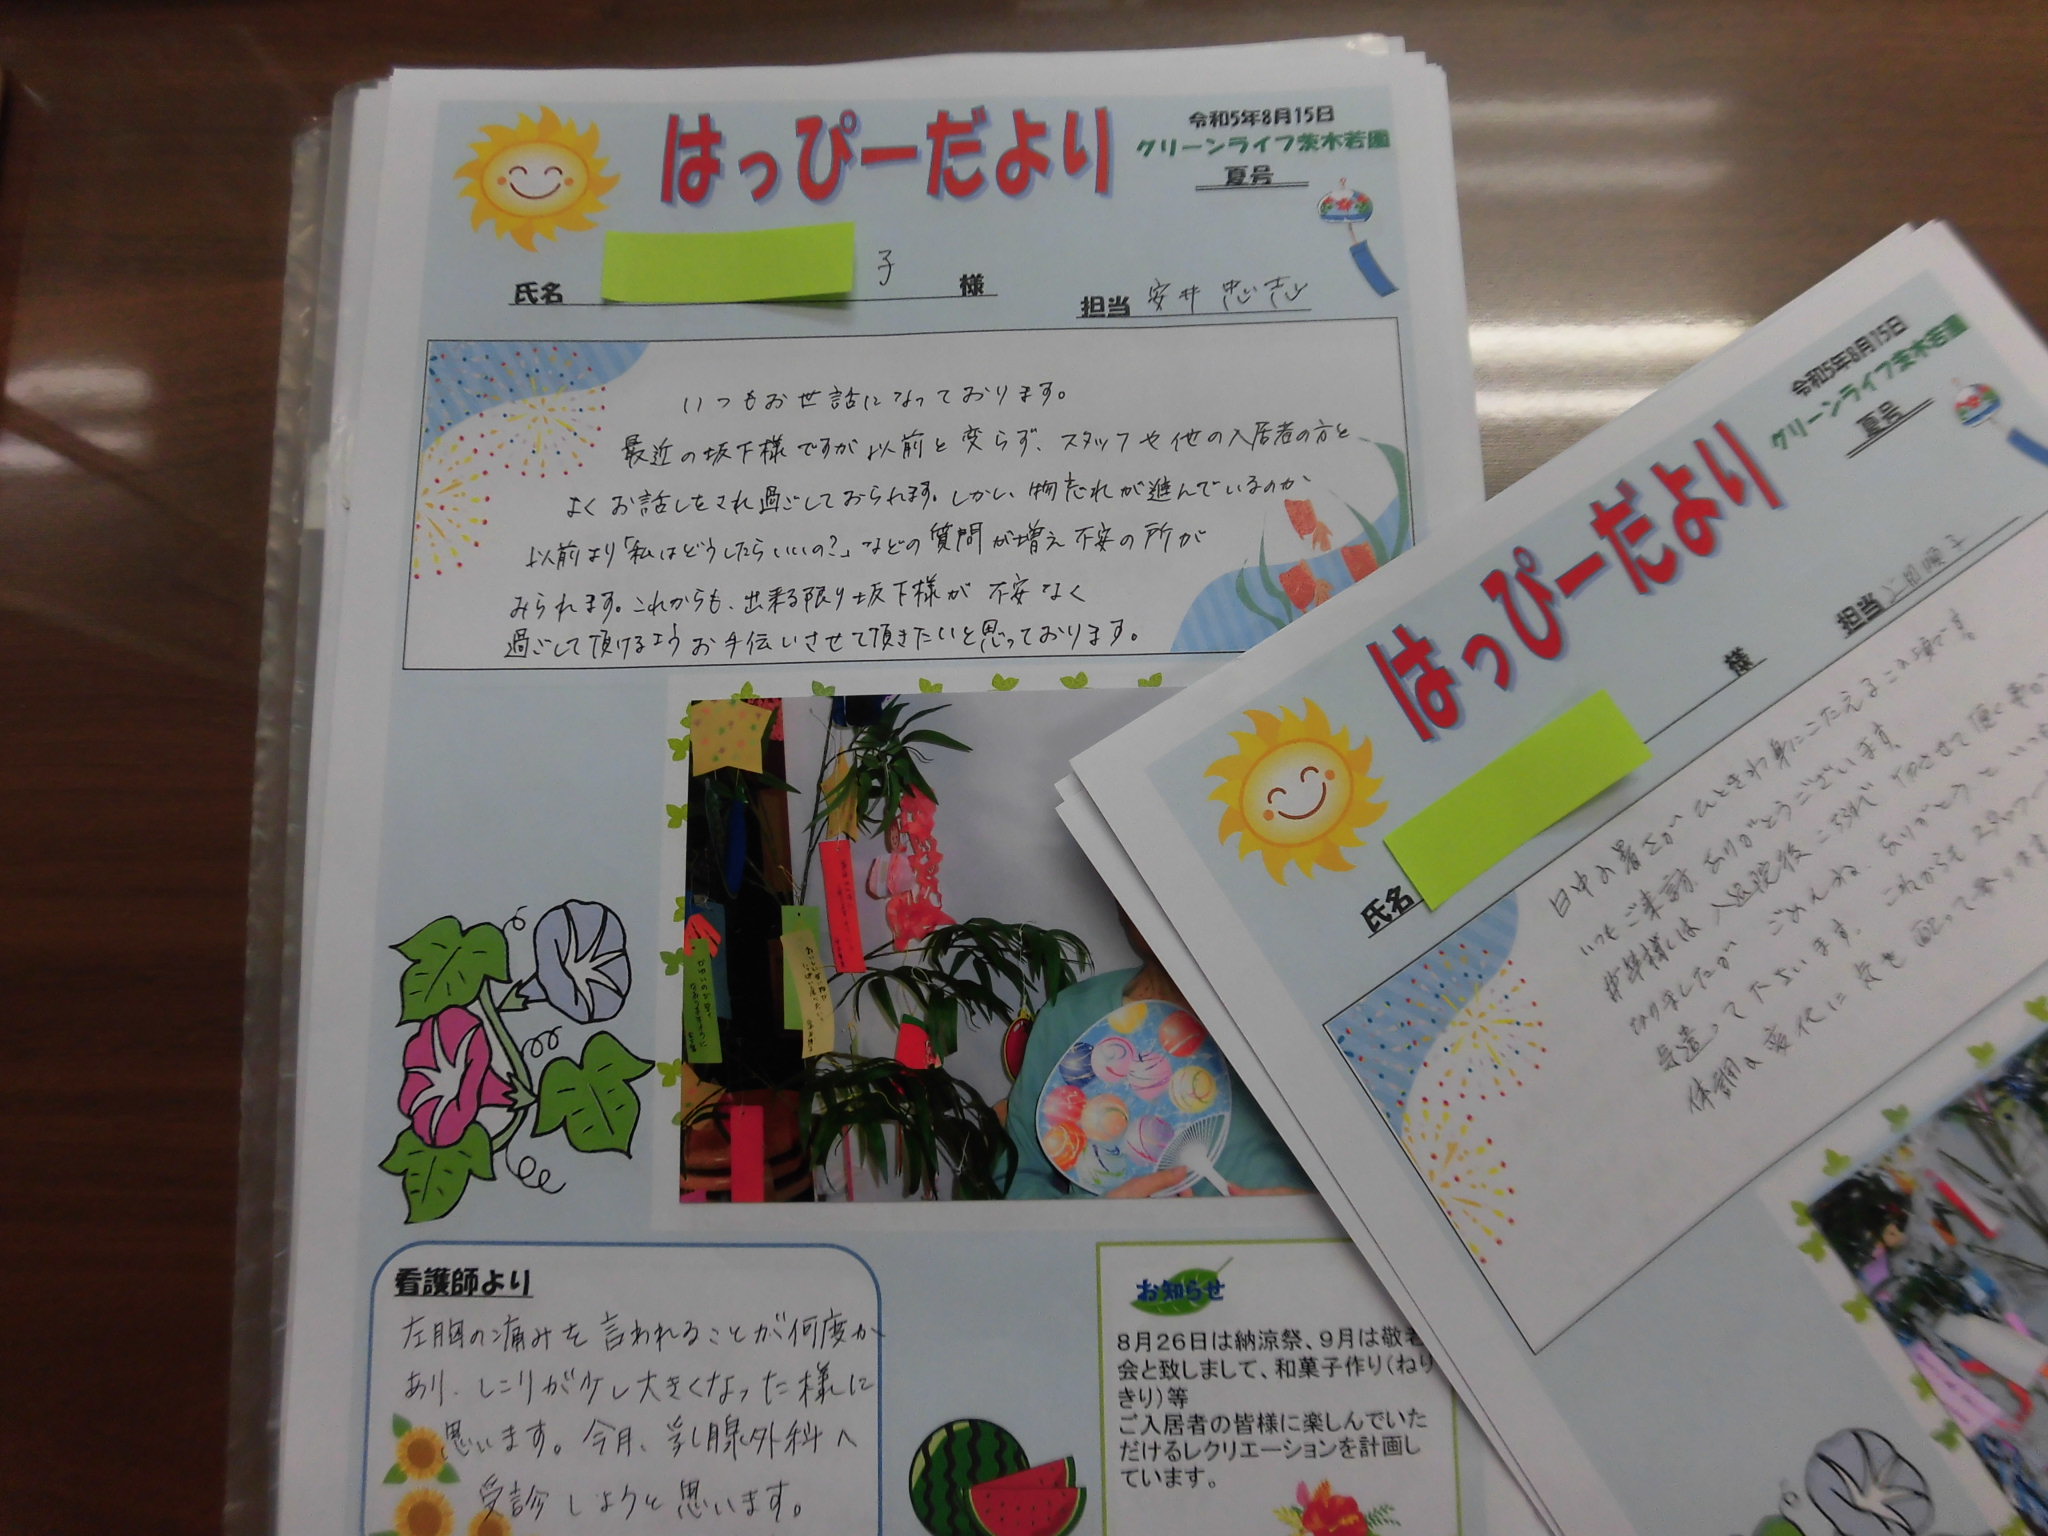 はっぴーだより
令和5年8月15日
グリーンライフ茨木若園
夏号
氏名 子 様
担当 安井 忠志
いつもお世話になっております。
最近の坂下様ですが以前と変らず、スタッフや他の入居者の方と
よくお話しをされ過ごしておられます。しかし、物忘れが進んでいるのか
以前より「私はどうしたらいいの?」などの質問が増え不安の所が
みられます。これからも、出来る限り坂下様が不安なく
過ごして頂けるようお手伝いさせて頂きたいと思っております。
看護師より
左胸の痛みを言われることが何度か
あり、しこりが少し大きくなった様に
思います。今月、乳腺外科へ
受診しようと思います。
お知らせ
8月26日は納涼祭、9月は敬老
会と致しまして、和菓子作り(ねり
きり)等
ご入居者の皆様に楽しんでいた
だけるレクリエーションを計画し
ています。
はっぴーだより
令和5年8月15日
グリーンライフ茨木若園
夏号
氏名 様
担当
日中の暑さがひときわ身にこたえるこの頃です
いつもご来訪ありがとうございます
様には入退院後
なりましたが ごめんね、ありがとうと
気遣って下さいます。これからもスタッフ
体調の変化に気を配って参ります